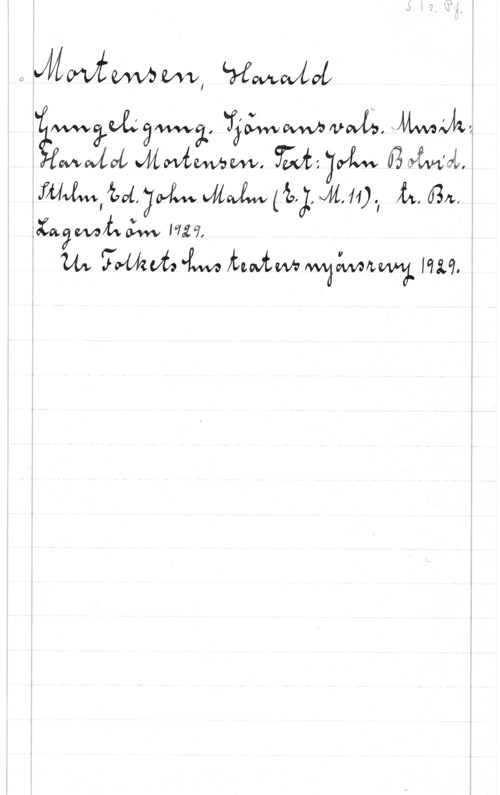 S 12. Pf.
Mortensen, Harald
Gungeligung. Sjömansvals. Musik:
Harald Mortensen. Text: John Botvid.
Sthlm, Ed. John Malm (E. J. M. 11); tr. Br.
Lagerström 1929.
Ur Folketshusteaters nyårsrevy 1929.